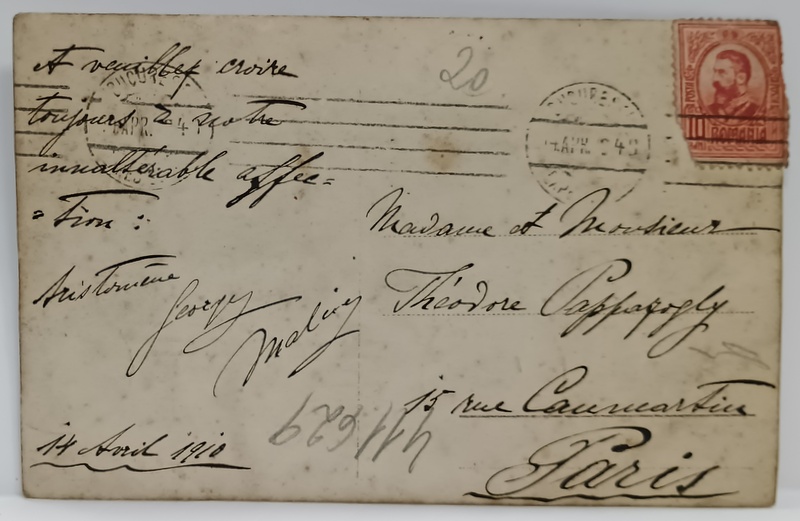 Et veuillez croire
toujours à notre
inaltérable affec=
=tion :
Aristomène
Georges
14 Avril 1910
20
BUCUREȘTI
APR.
BUCUREȘTI
APR.
10
ROMANIA
Madame et Monsieur
Théodore Pappazogly
15 rue Caumartin
Paris
411629